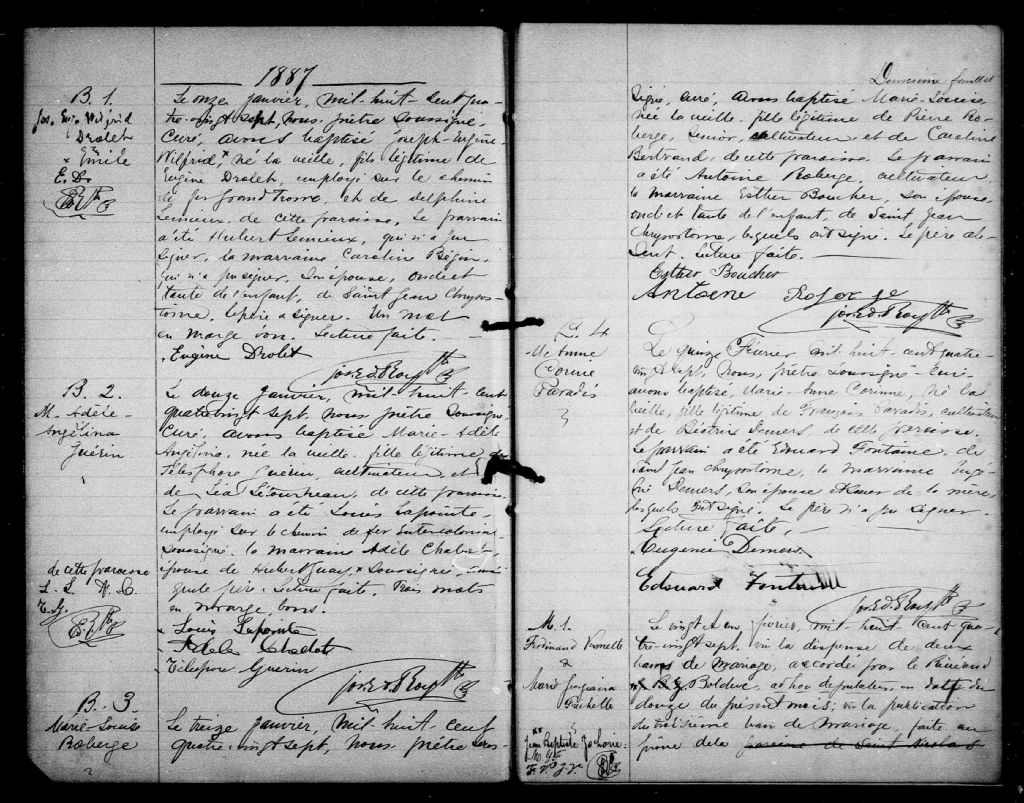 1887
B. 1.
Jos. Eug. Wilfrid
Drolet
x Emile
E. D.
Le onze janvier, mil-huit-cent qua-
tre-vingt sept, nous, prêtre soussigné,
Curé, avons baptisé Joseph-Eugène
Wilfrid, x né la veille, fils légitime de
Eugène Drolet, employé sur le chemin
de fer Grand Tronc, et de Delphine
Lemieux, de cette paroisse. Le parrain
a été Hubert Lemieux, qui n'a pu
signer, la marraine Caroline Bégin,
qui n'a pu signer, son épouse, oncle et
tante de l'enfant, de Saint Jean Chrysos-
tome. Le père a signé. Un mot
en marge bon. Lecture faite. —
Eugène Drolet
Jos. Ed. Roy Ptre
B. 2.
M. Adèle-
Angélina
Guérin
Le douze janvier, mil-huit-cent
quatre-vingt sept, nous prêtre soussigné
Curé, avons baptisé Marie-Adèle
Angélina, née la veille, fille légitime de
Télesphore Guérin, cultivateur, et
de Léa Létourneau, de cette paroisse.
Le parrain a été Louis Lapointe,
employé sur le chemin de fer Intercolonial
soussigné, la marraine Adèle Chabot,
épouse de Hubert Guay, x soussignée, ainsi
que le père. Lecture faite. Trois mots
en marge, bons.
de cette paroisse
L. L. A. C.
T. G.
Louis Lapointe
Adele Chabot
Télespore Guerin
Jos. Ed. Roy Ptre
B. 3
Marie-Louise
Roberge
Le treize janvier, mil-huit-cent
quatre-vingt sept, nous, prêtre sous-
Deuxième feuillet
signé, curé, avons baptisé Marie-Louise,
née la veille, fille légitime de Pierre Ro-
berge, senior, cultivateur, et de Caroline
Bertrand, de cette paroisse. Le parrain
a été Antoine Roberge, cultivateur
la marraine Esther Boucher, son épouse,
oncle et tante de l'enfant, de Saint Jean
Chrysostome, lesquels ont signé. Le père ab-
sent. Lecture faite. —
Esther Boucher
Antoine Roberge
Jos. Ed. Roy Ptre
B. 4
M. Anne
Corinne
Paradis
Le quinze Février mil-huit-cent quatre-
vingt sept, Nous, prêtre soussigné Curé
avons baptisé, Marie-Anne Corinne, née la
veille, fille légitime de François Paradis, cultivateur
et de Béatrix Demers, de cette paroisse.
Le parrain a été Edouard Fontaine, de
Saint Jean Chrysostome, la marraine Eugé-
nie Demers, son épouse soeur de la mère,
lesquels ont signé. Le père n'a pu signer.
Lecture faite,
Eugenie Demers.
Edouard Fontaine
Jos. Ed. Roy Ptre
M. 1.
Ferdinand
&
Marie
Frichette
Le vingt et un février, mil-huit-cent qua-
tre-vingt sept, vu la dispense de deux
bans de mariage, accordée par le Révérend
Bolduc, ad hoc deputatus, en date du
douze du présent mois; vu la publication
du troisième ban de mariage, faite au
prône de la paroisse de Saint Nicolas
Jean Baptiste